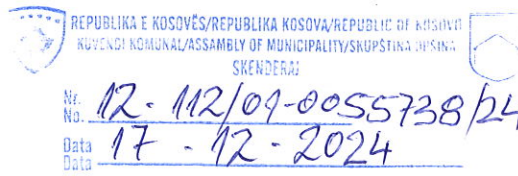 REPUBLIKA E KOSOVËS/REPUBLIKA KOSOVA/REPUBLIC OF KOSOVO
KUVENDI KOMUNAL/ASSAMBLY OF MUNICIPALITY/SKUPŠTINA OPŠINA
SKENDERAJ
Nr.
No. 12-112/01-0055738/24
Data
Data 17-12-2024